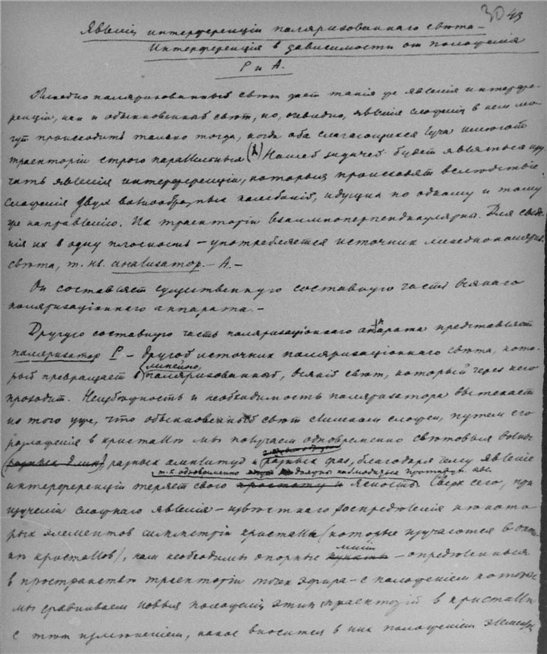 30 43
Явленія интерференціи поляризованнаго свѣта —
Интерференція в зависимости от положенія
P и A.
Линейно поляризованный свѣт дает такія же явленія интерфе-
ренціи, как и обыкновенный свѣт, но, очевидно, явленія сложенія в нем мо-
гут происходить только тогда, когда оба слагающихся луча имѣют
траекторіи строго параллельныя. Нашей задачей будет являться изу-
чать явленія интерференціи, которыя происходят вслѣдствіе
сложенія двух волнообразных колебаній, идущих по одному и тому
же направленію. Их траекторіи взаимноперпендикулярны. Для сведе-
нія их в одну плоскость — употребляется источник линейнополяриз.
свѣта, т. наз. анализатор. — A. —
Он составляет существенную составную часть всякаго
поляризаціоннаго аппарата. —
Другую составную часть поляризаціоннаго аппарата представляет
поляризатор P — другой источник поляризаціоннаго свѣта, кото-
рый превращает в линейно поляризованный, всякій свѣт, который через него
проходит. Неизбѣжность и необходимость поляризатора вытекает
из того уже, что обыкновенный свѣт слишком сложен, путем его
разложенія в кристаллѣ мы получаем одновременно свѣтовыя волны
разных амплитуд и разных фаз, благодаря чему явленіе
интерференціи теряет свою ясность. Сверх сего, при
изученіи сложнаго явленія — цвѣтнаго распредѣленія и некото-
рых элементов симметріи кристалла /которые изучаются в
кристаллов/, нам необходимы опорные линіи — опредѣленныя
в пространствѣ траекторіи точек эфира — с положеніем которых
мы сравниваем новыя положенія этих траекторій в кристаллѣ
с тѣм измѣненіем, какое вносится в них положеніем